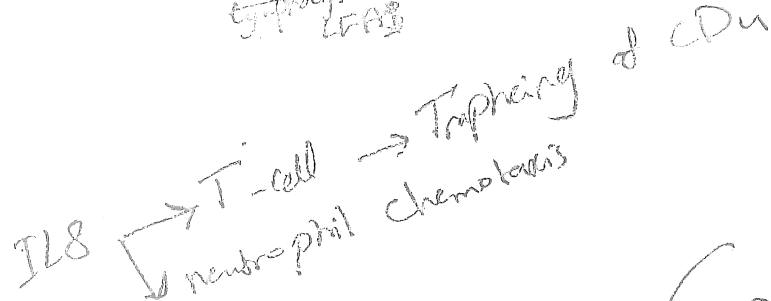 IL8 → T-cell → Trapheing of CD4
neutrophil chemotaxis